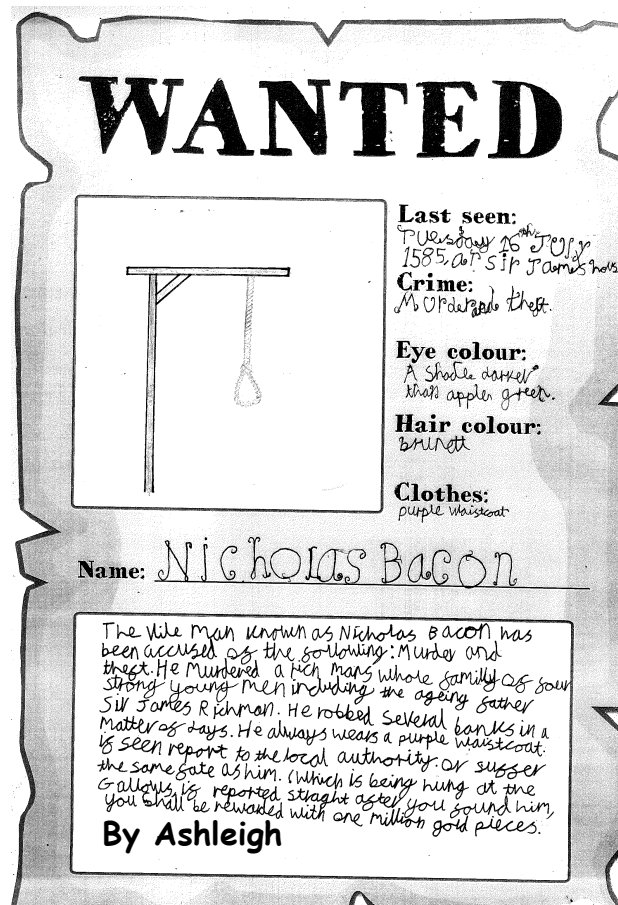 WANTED
Last seen:
Tuesday 16th July
1585, at Sir James hous
Crime:
Murder and theft.
Eye colour:
A shade darker
than apple green.
Hair colour:
brunett
Clothes:
purple waistcoat
Name: Nicholas Bacon
The Vile Man known as Nicholas Bacon has
been accused of the following: Murder and
theft. He Murdered a rich mans whole familly of four
strong young men including the ageing father
Sir James Richman. He robbed several banks in a
matter of days. He always wears a purple waistcoat.
if seen report to the local authority. or suffer
the same fate as him. (Which is being hung at the
Gallows, if reported straght after you found him,
you shall be rewaded with one million gold pieces.
By Ashleigh